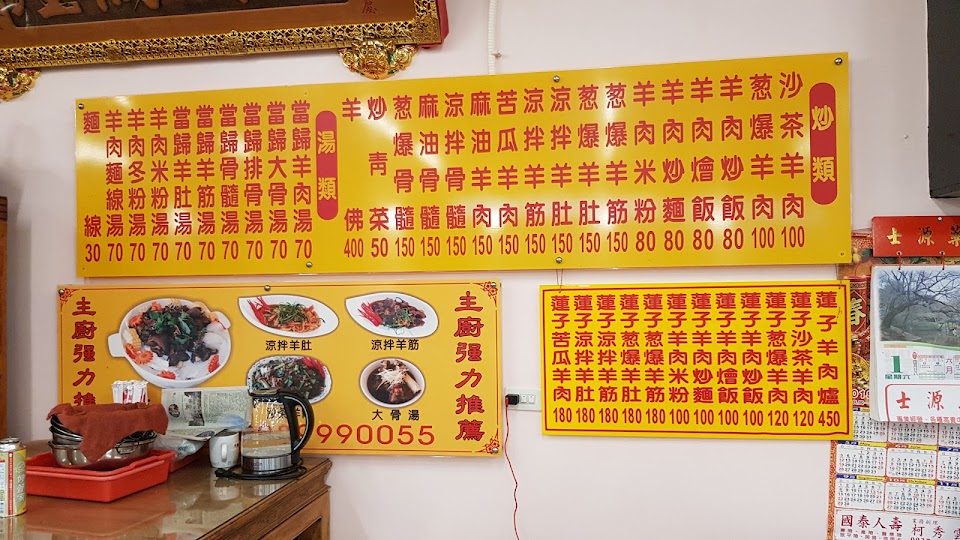 炒類
沙茶羊肉100
葱爆羊肉100
羊肉炒飯80
羊肉燴飯80
羊肉炒麵80
羊肉米粉80
葱爆羊筋150
葱爆羊肚150
涼拌羊肚150
涼拌羊筋150
苦瓜羊肉150
麻油羊肉150
涼拌骨髓150
麻油骨髓150
葱爆骨髓150
炒青菜50
羊佛400
湯類
當歸羊肉湯70
當歸大骨湯70
當歸排骨湯70
當歸骨髓湯70
當歸羊筋湯70
當歸羊肚湯70
羊肉米粉湯70
羊肉冬粉湯70
羊肉麵線湯70
麵線30
主廚强力推
主廚强力推薦
涼拌羊肚
涼拌羊筋
大骨湯
990055
蓮子羊肉爐450
蓮子沙茶羊肉120
蓮子葱爆羊肉120
蓮子羊肉炒飯100
蓮子羊肉燴飯100
蓮子羊肉炒麵100
蓮子羊肉米粉100
蓮子葱爆羊筋180
蓮子葱爆羊肚180
蓮子涼拌羊筋180
蓮子涼拌羊肚180
蓮子苦瓜羊肉180
士源
1
星期六
六月
士源
國泰人壽
柯秀雲